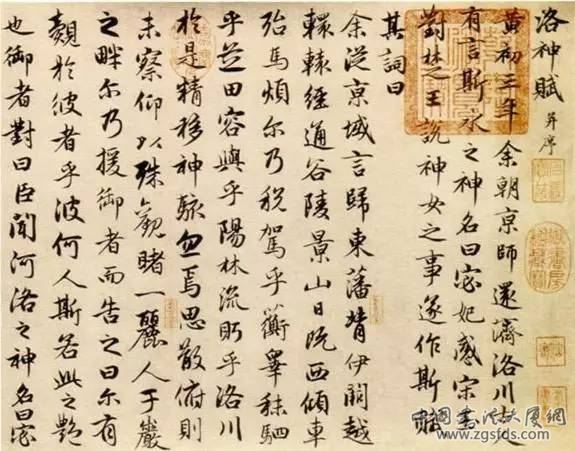 洛神賦 并序
黃初三年余朝京師還濟洛川古人
有言斯水之神名曰宓妃感宋玉
對楚王說神女之事遂作斯賦
其詞曰
余從京域言歸東藩背伊闕越
轘轅經通谷陵景山日既西傾車
殆馬煩尔乃稅駕乎蘅皋秣駟
乎芝田容與乎陽林流眄乎洛川
於是精移神駭忽焉思散俯則
未察仰以殊觀睹一麗人于巖
之畔尔乃援御者而告之曰尔有
覿於彼者乎彼何人斯若此之艷
也御者對曰臣聞河洛之神名曰宓
中国书法大厦网
www.zgsfds.com